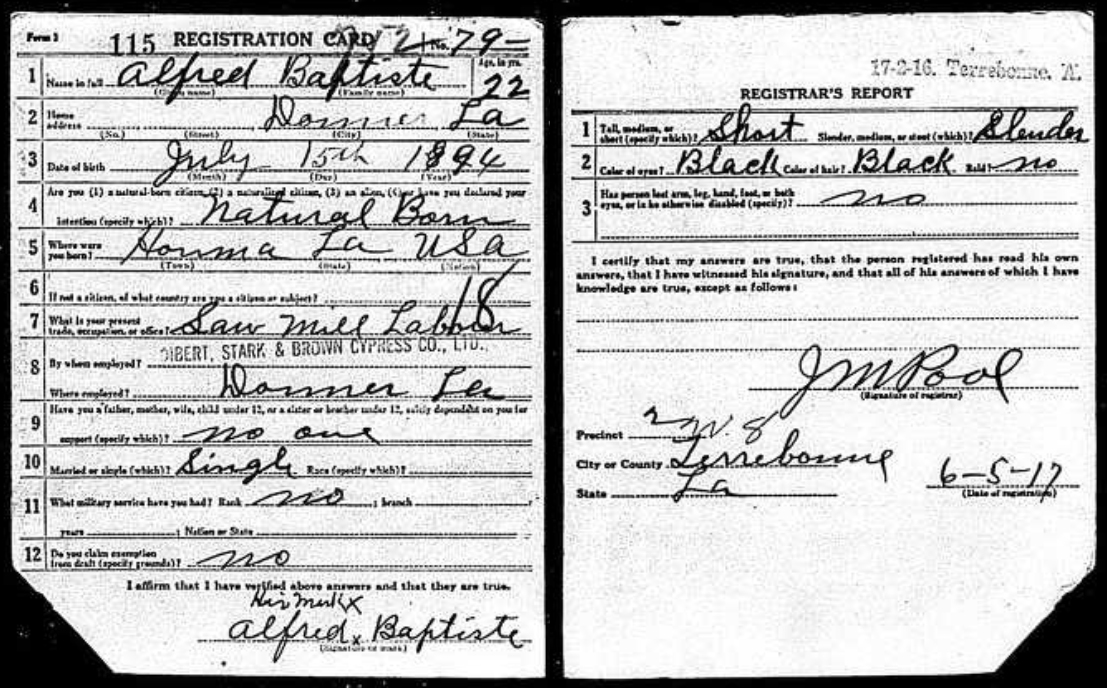 Form 1 115 REGISTRATION CARD No. 79-
1 Name in full Alfred Baptiste Age, in yrs. 22
(Given name) (Family name)
2 Home address Donner La
(No.) (Street) (City) (State)
3 Date of birth July 15th 1894
(Month) (Day) (Year)
4 Are you (1) a natural-born citizen, (2) a naturalized citizen, (3) an alien, (4) or have you declared your
intention (specify which)? Natural Born
5 Where were you born? Houma La USA
(Town) (State) (Nation)
6 If not a citizen, of what country are you a citizen or subject?
18
7 What is your present trade, occupation, or office? Saw Mill Labour
8 By whom employed? DIBERT, STARK & BROWN CYPRESS CO., LTD.,
Where employed? Donner La
9 Have you a father, mother, wife, child under 12, or a sister or brother under 12, solely dependent on you for
support (specify which)? no one
10 Married or single (which)? Single Race (specify which)?
11 What military service have you had? Rank no ; branch
years ; Nation or State
12 Do you claim exemption from draft (specify grounds)? no
I affirm that I have verified above answers and that they are true.
His Mark X
Alfred x Baptiste
(Signature or mark)
17-2-16. Terrebonne. A.
REGISTRAR'S REPORT
1 Tall, medium, or short (specify which)? Short Slender, medium, or stout (which)? Slender
2 Color of eyes? Black Color of hair? Black Bald? no
3 Has person lost arm, leg, hand, foot, or both
eyes, or is he otherwise disabled (specify)? no
I certify that my answers are true, that the person registered has read his own
answers, that I have witnessed his signature, and that all of his answers of which I have
knowledge are true, except as follows:
J M Pool
(Signature of registrar)
Precinct 2 W. 8
City or County Terrebonne
State La
6-5-17
(Date of registration)